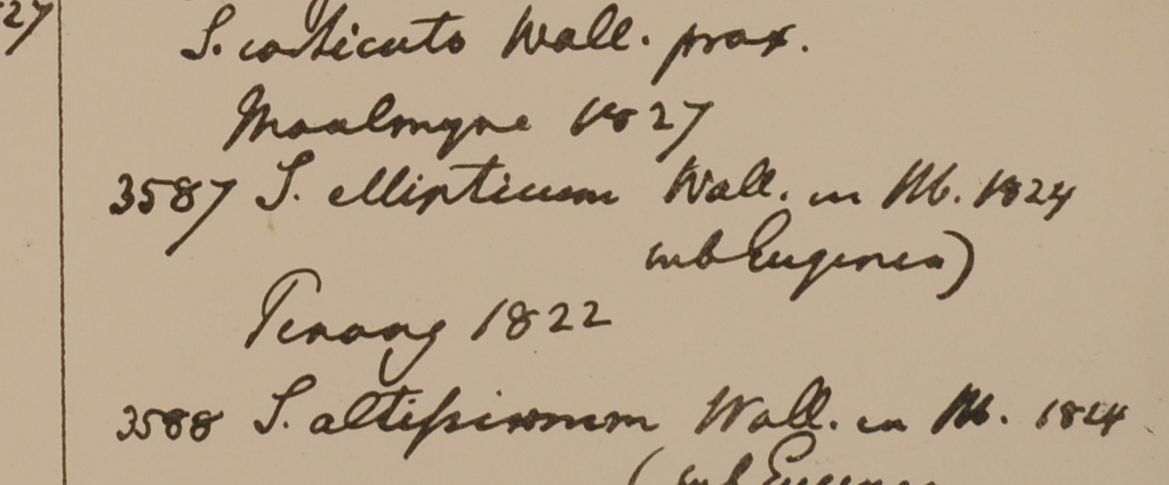 27
S. corticato Wall. prox.
Moalmyne 1827
3587 S. ellipticum Wall. in Hb. 1824
sub Eugenia)
Penang 1822
3588 S. altissimum Wall. in Hb. 1824
(sub Eugenia